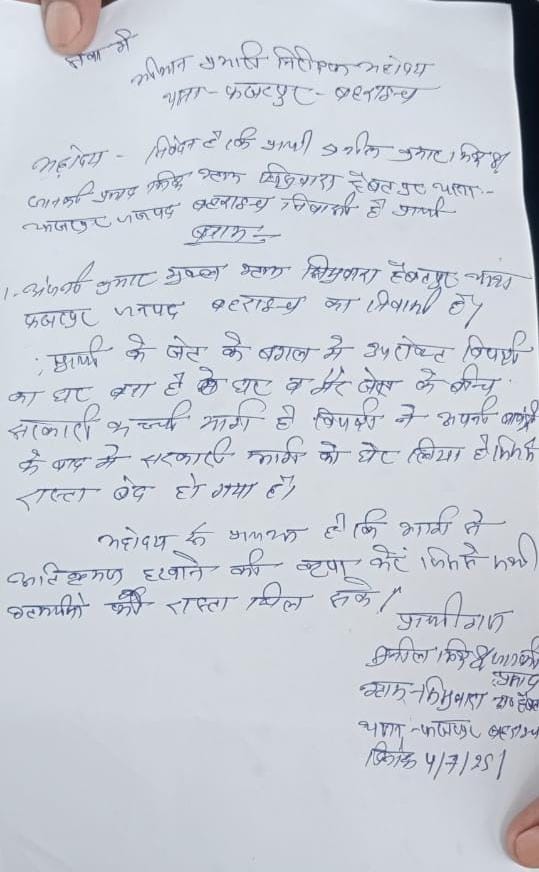 सेवा में
श्रीमान प्रभारी निरीक्षक महोदय
थाना - फखरपुर - बहराइच
महोदय - निवेदन है कि प्रार्थी कुमार मिश्र
जानकी प्रसाद ग्राम हैबतपुर थाना -
फखरपुर जनपद बहराइच निवासी है प्रार्थी
बनाम -
1. कुमार शुक्ल ग्राम हैबतपुर थाना
फखरपुर जनपद बहराइच का निवासी है।
प्रार्थी के खेत के बगल में उपरोक्त विपक्षी
का घर बना है घर व मेरे खेत के बीच
सरकारी कच्ची मार्ग है विपक्षी ने अपनी
के बाद में सरकारी मार्ग को घेर लिया है जिससे
रास्ता बंद हो गया है।
महोदय से है कि मार्ग से
अतिक्रमण हटवाने की कृपा करें जिससे सभी
को रास्ता मिल सके।
प्रार्थीगण
जानकी
प्रसाद
ग्राम -
थाना - फखरपुर बहराइच
दिनांक 4/7/25